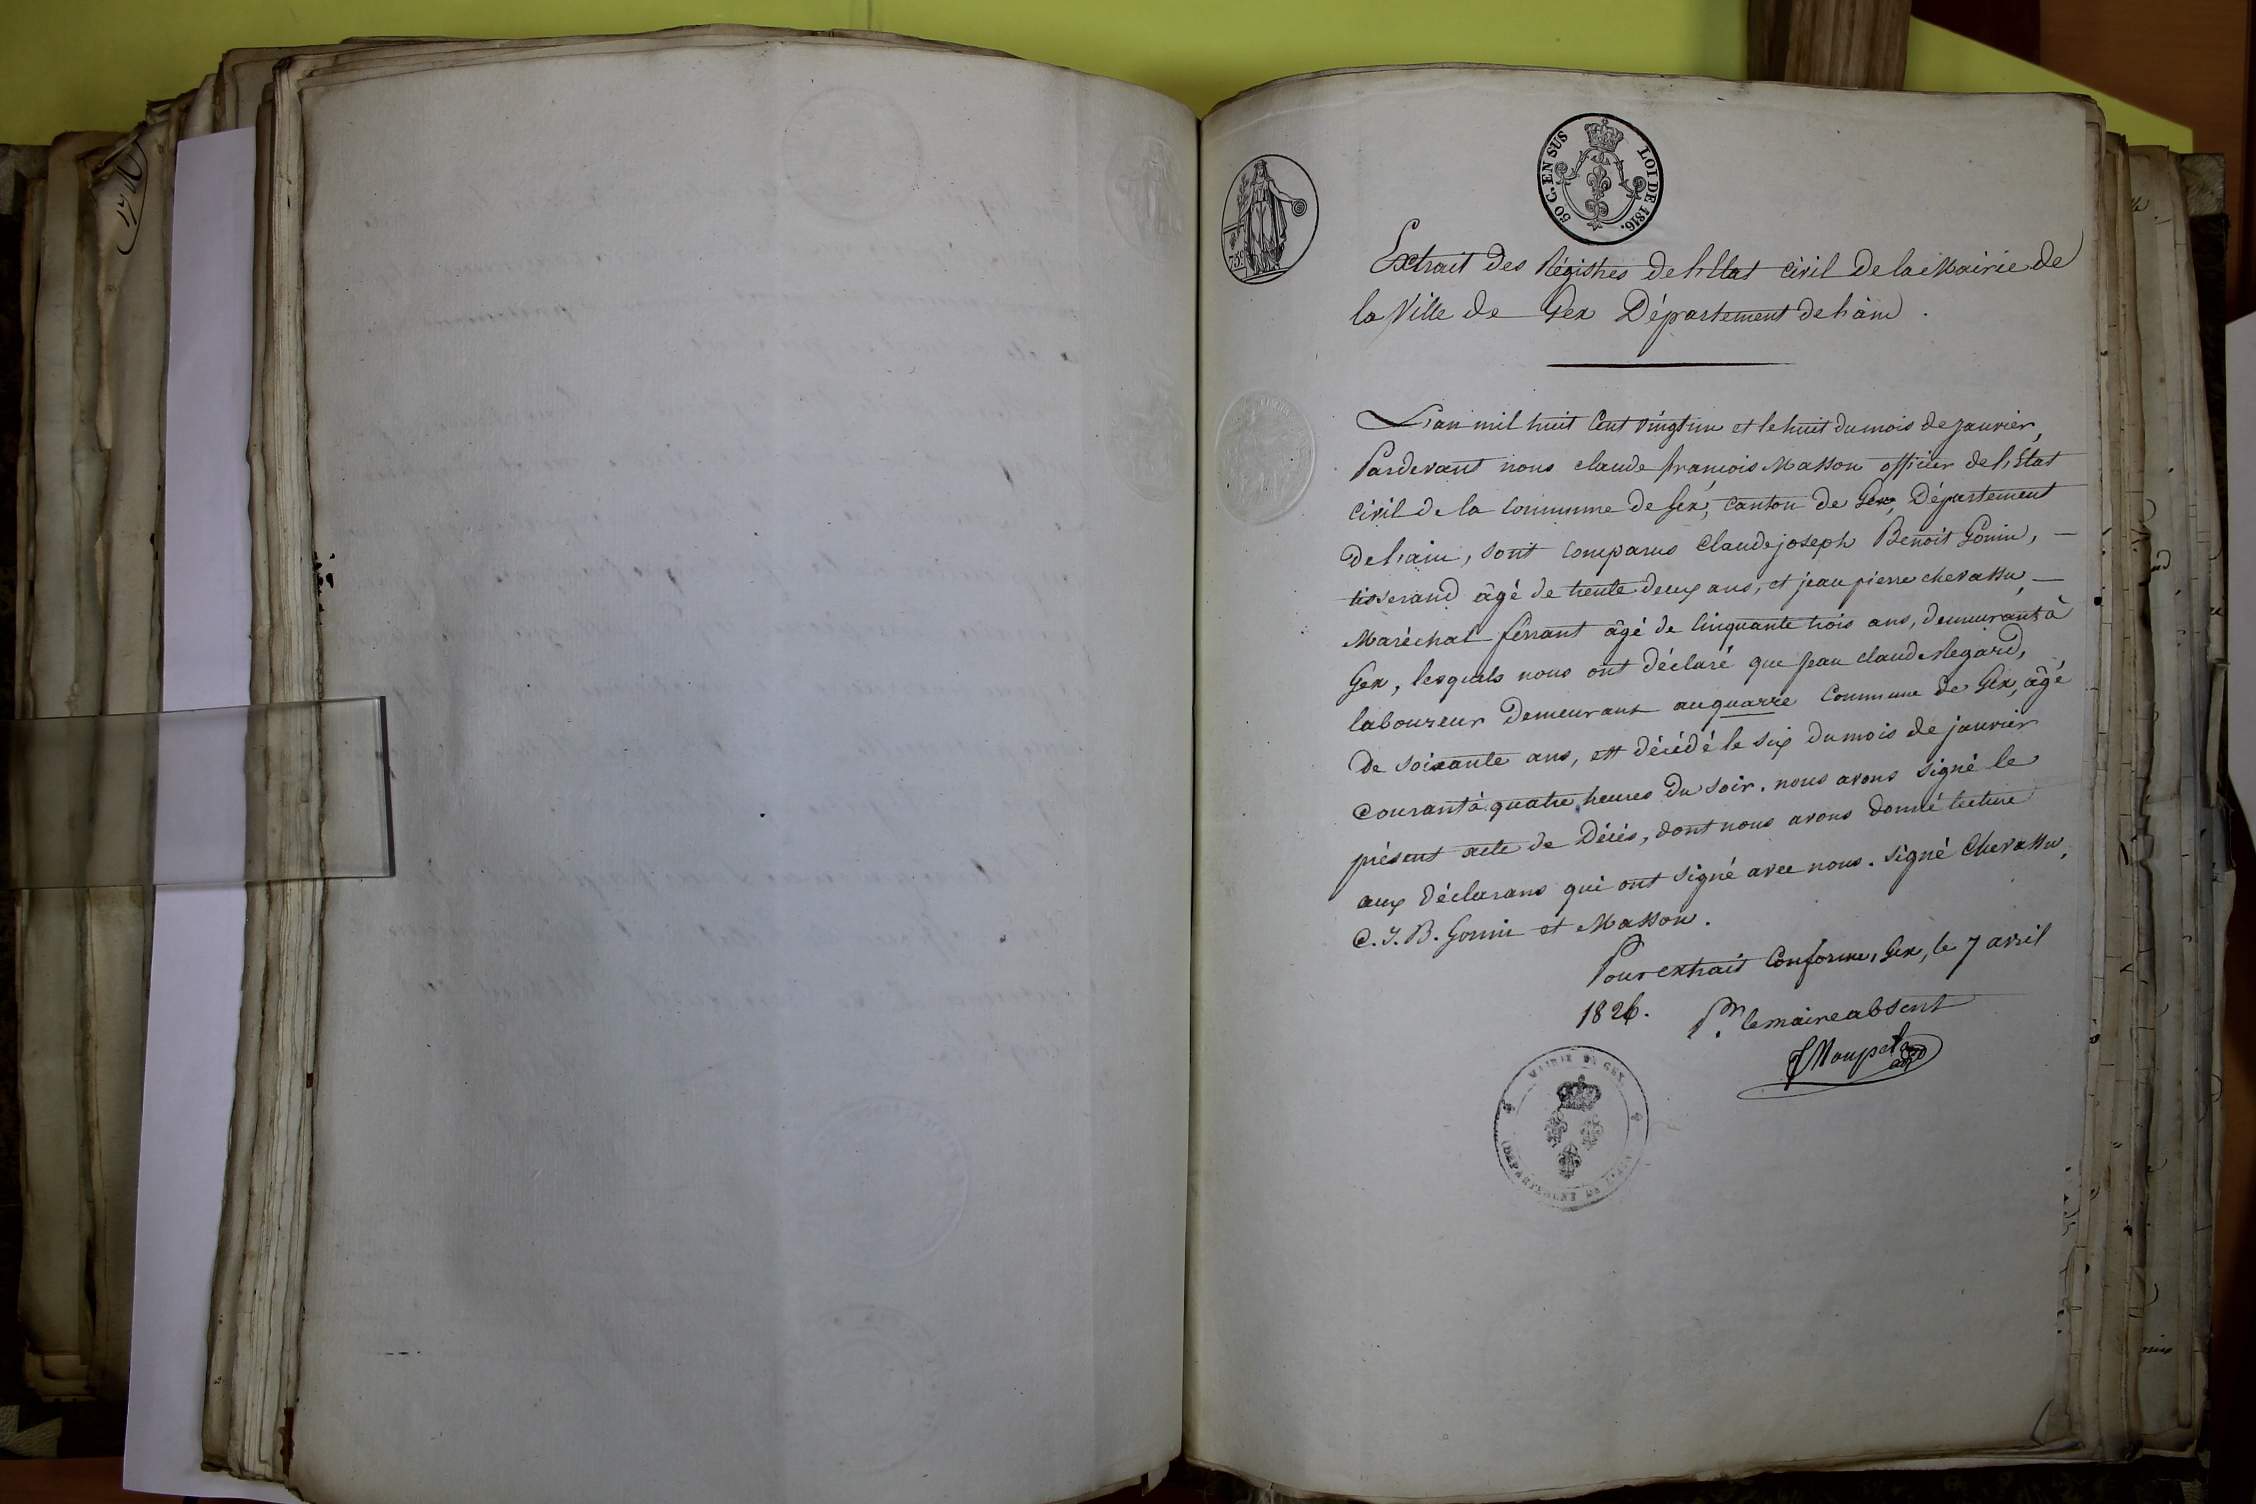 50 C. EN SUS LOI DE 1816.
75c
Extrait des Régistres de l'Etat civil de la Mairie de
la Ville de Gex Département de l'ain.
L'an mil huit Cent vingt un et le huit du mois de janvier,
Pardevant nous claude françois Masson officier de l'Etat
civil de la commune de Gex, canton de Gex, Département
de l'ain, sont comparus Claude joseph Benoit Gonin,
tisserand âgé de trente deux ans, et jean pierre chevassu
Maréchal ferrant âgé de cinquante trois ans, demeurant à
Gex, lesquels nous ont déclaré que jean claude Regard,
laboureur demeurant au quarre commune de Gex, âgé
de soixante ans, est décédé le six du mois de janvier
courant à quatre heures du soir. nous avons signé le
présent acte de Décès, dont nous avons donné lecture
aux déclarans qui ont signé avec nous. signé Chevassu,
C. J. B. Gonin et Masson.
Pour extrait Conforme, Gex, le 7 avril
1826. Pr. le maire absent
MAIRIE DE GEX
DÉPARTEMENT DE L'AIN